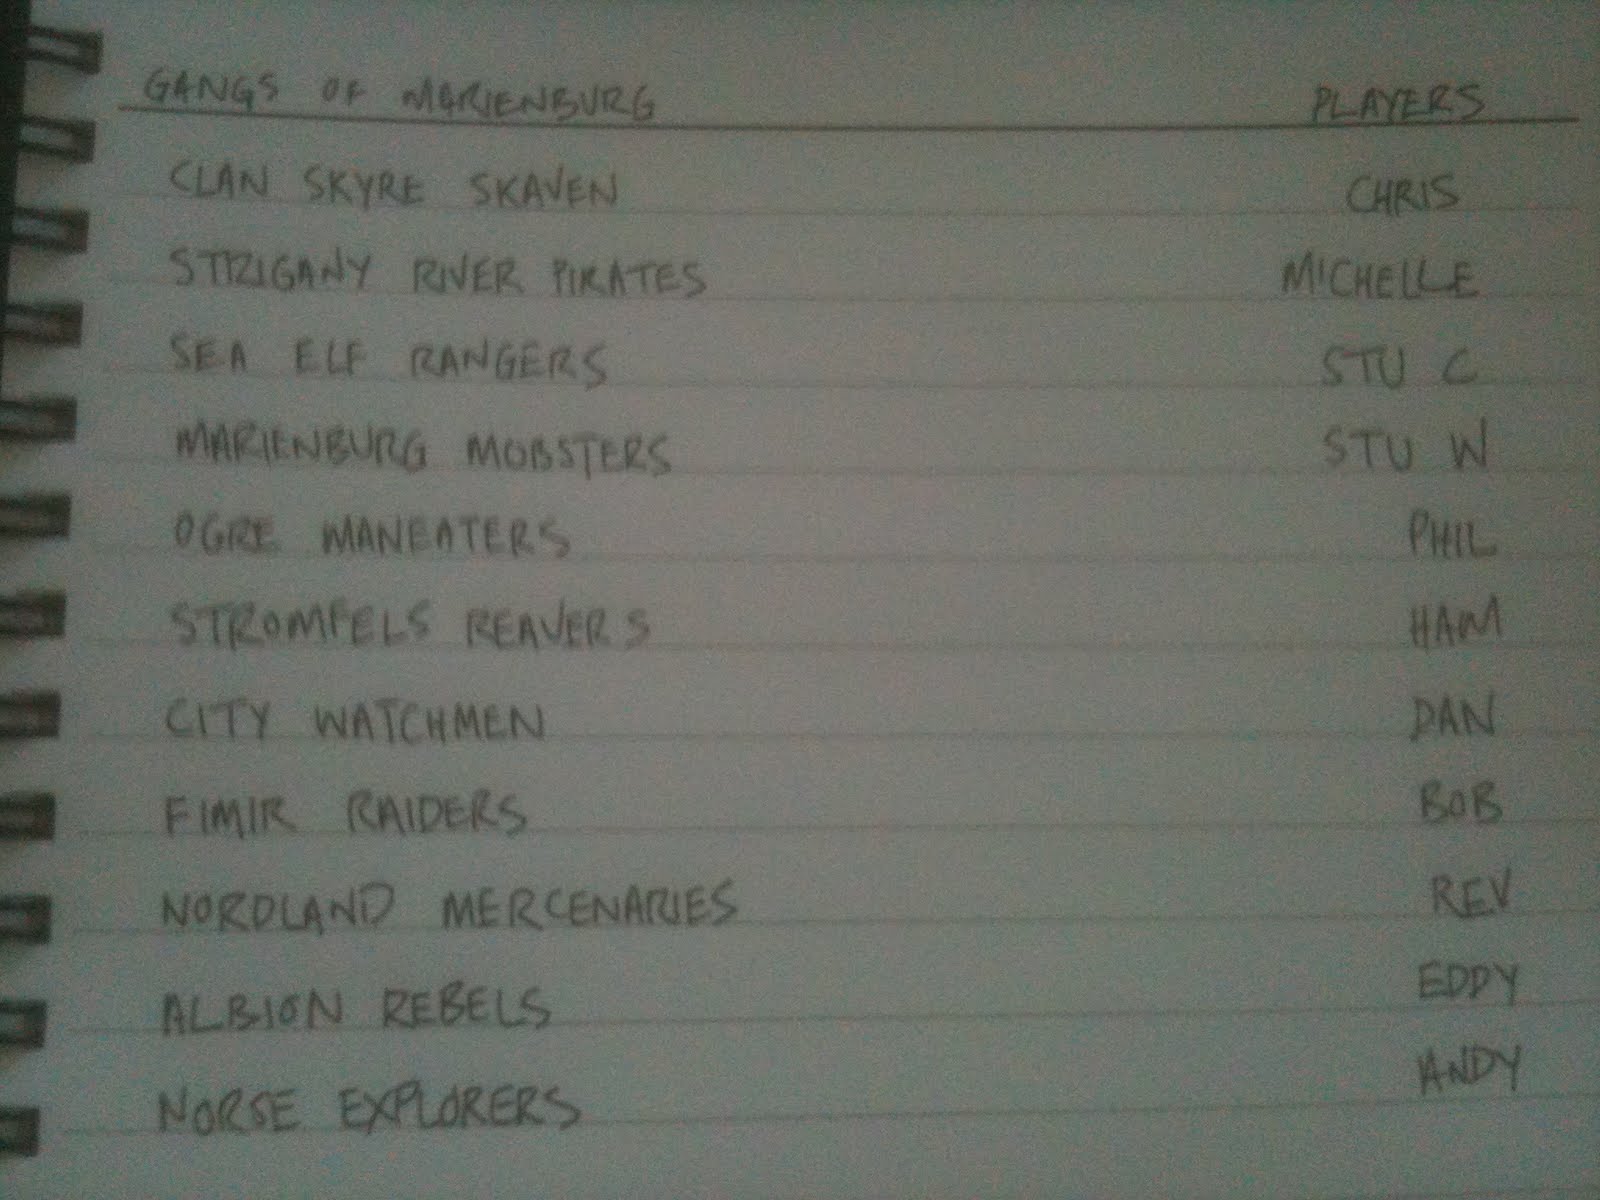 GANGS OF MARIENBURG PLAYERS
CLAN SKYRE SKAVEN CHRIS
STRIGANY RIVER PIRATES MICHELLE
SEA ELF RANGERS STU C
MARIENBURG MOBSTERS STU W
OGRE MANEATERS PHIL
STROMFELS REAVERS HAM
CITY WATCHMEN DAN
FIMIR RAIDERS BOB
NORDLAND MERCENARIES REV
ALBION REBELS EDDY
NORSE EXPLORERS ANDY